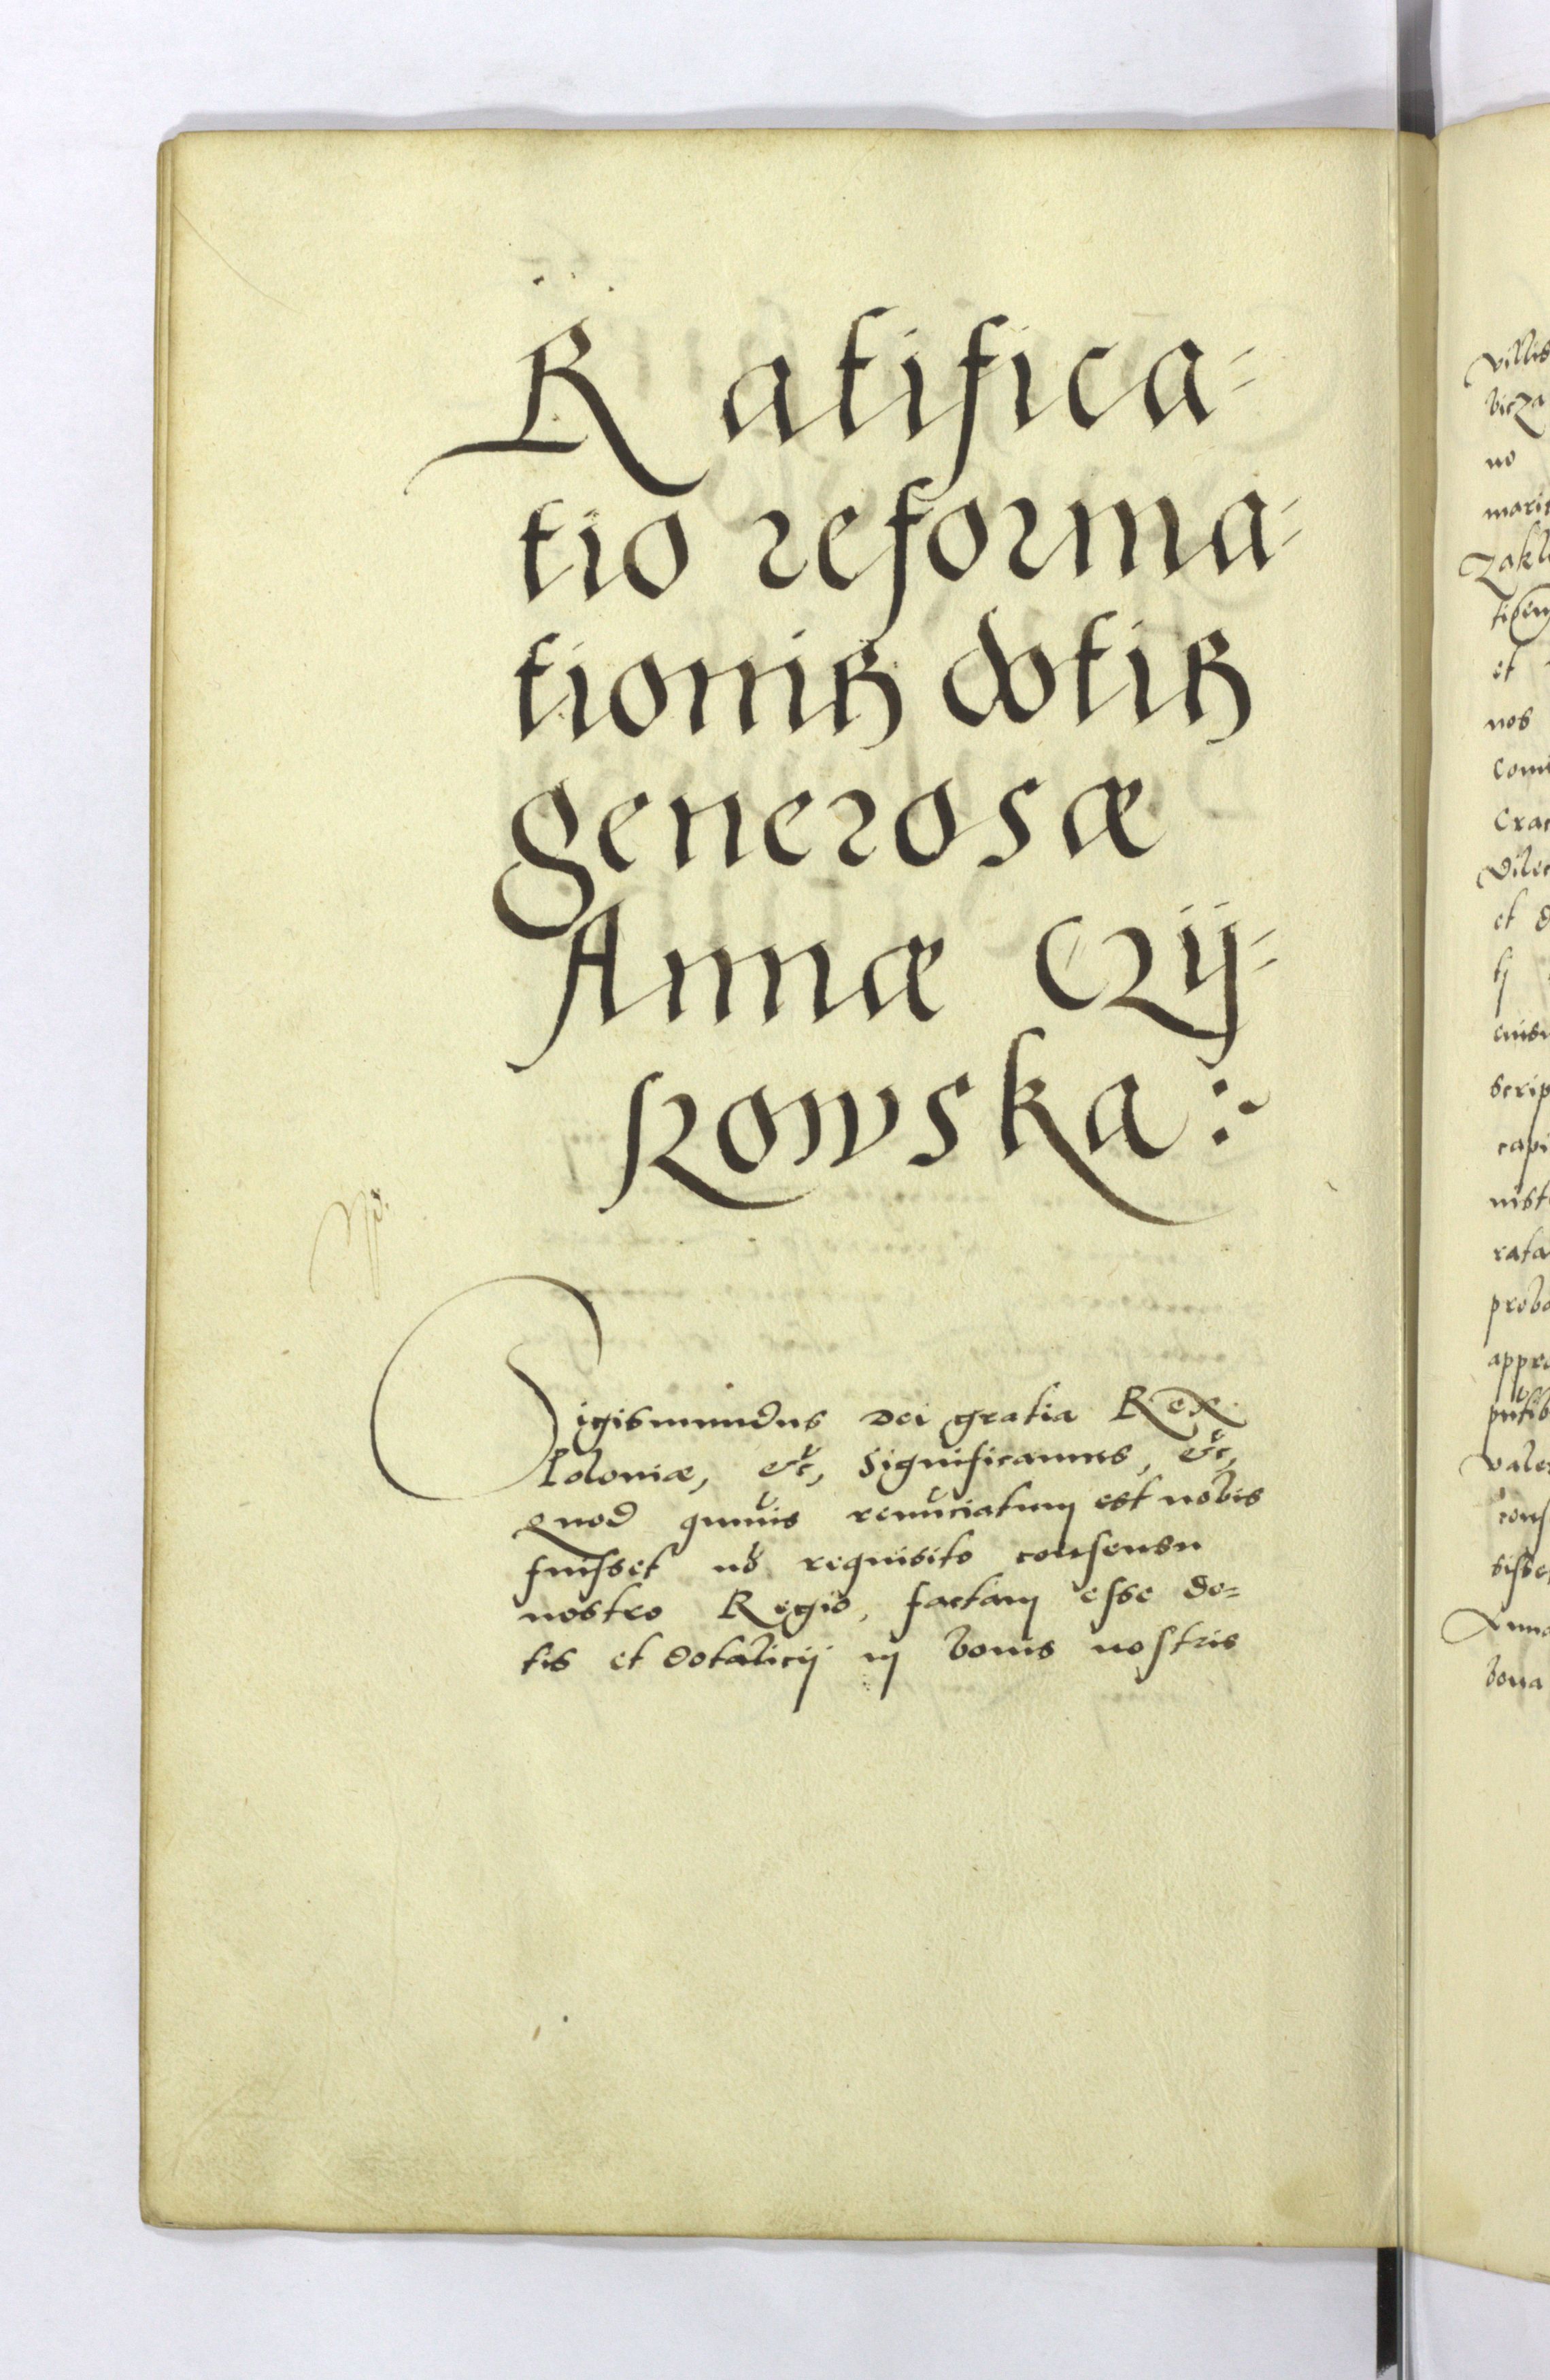 Ratifica-
tio reforma-
tionis dotis
generosæ
Annæ Czij-
kowska:
Sigismundus Dei gratia Rex
Poloniæ, etc, Significamus, etc,
Quod qumuis renunciatum est nobis
fuisset nõ requisito consensu
nostro Regio, factam esse do=
tis et dotalicij in bonis nostris
villis
no
et
nos
proba
bona